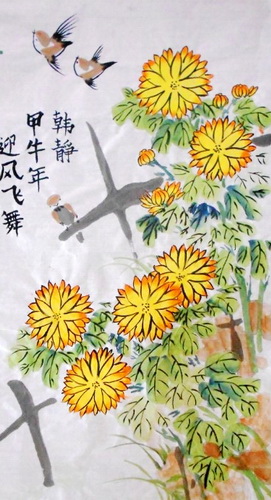 迎风飞舞
甲午年
韩静